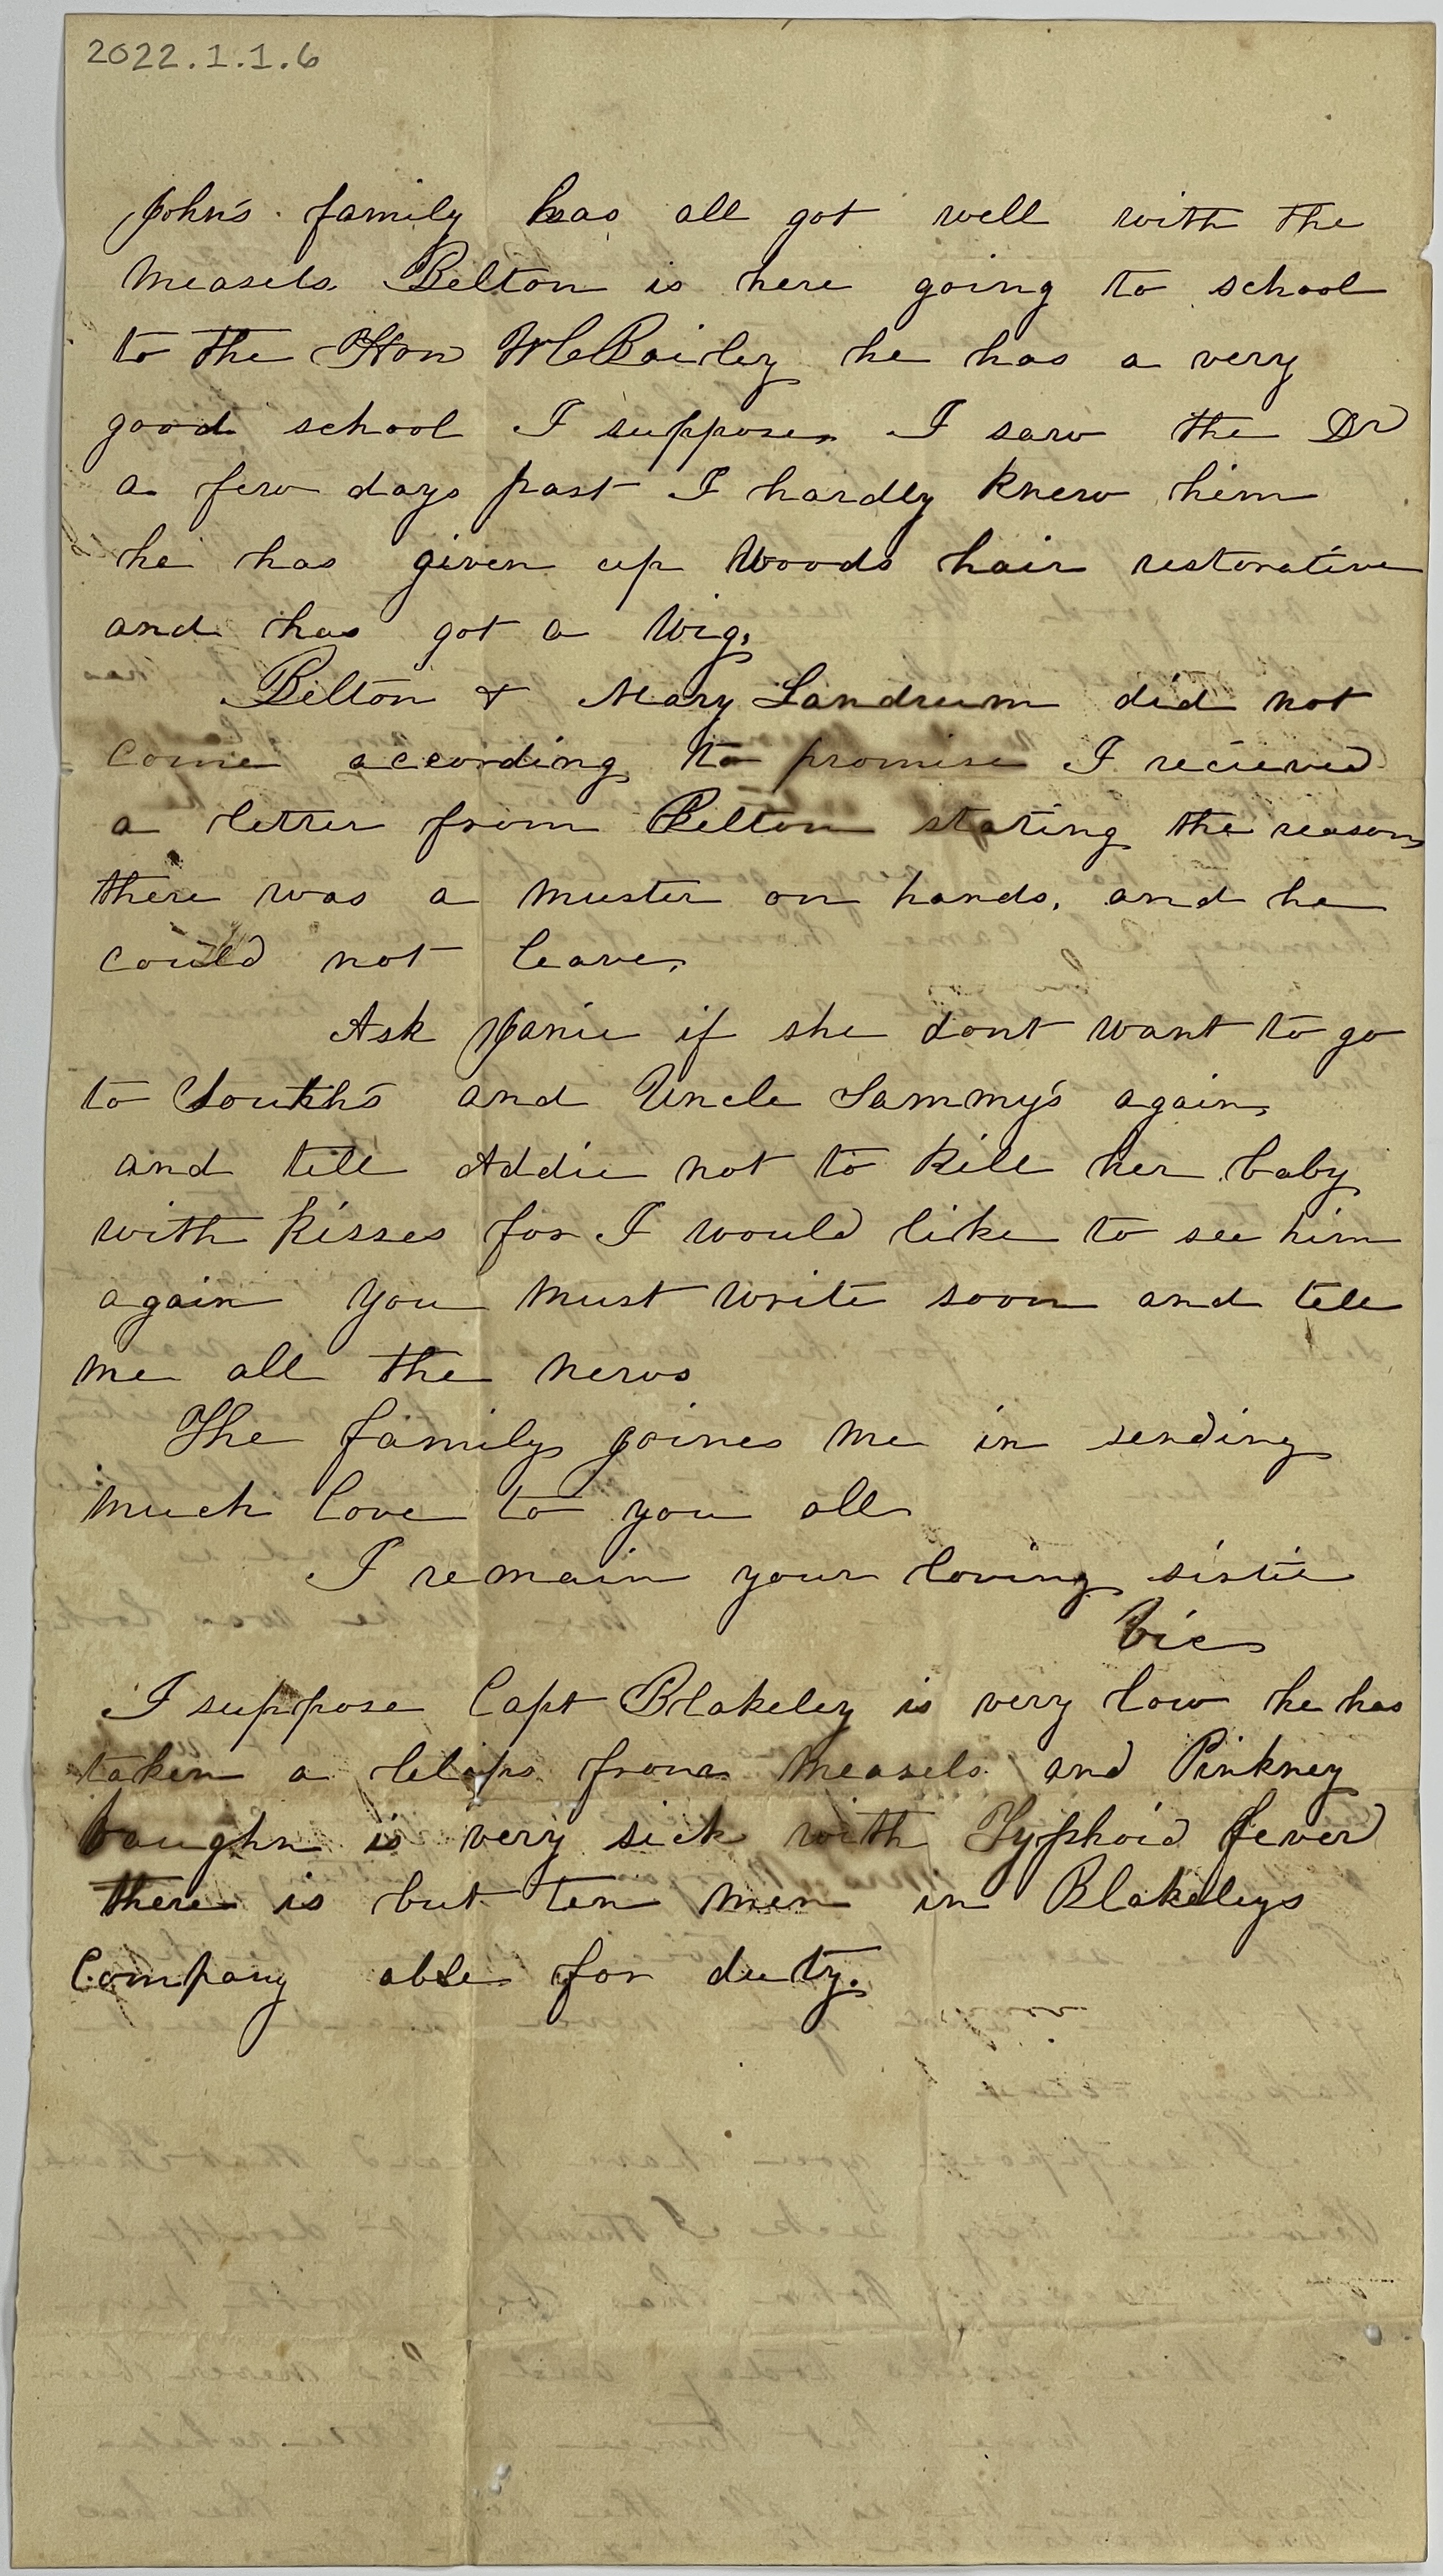 2022.1.1.6
John's family has all got well with the
Measels. Belton is here going to school
to the Hon W C Bailey he has a very
good school I suppose. I saw the Dr
a few days past I hardly knew him
he has given up Woods hair restorative
and has got a Wig.
Belton & Mary Landrum did not
come according to promise I recieved
a letter from Belton stating the reason
there was a muster on hands, and he
could not leave.
Ask Janie if she dont want to go
to and Uncle Sammy's again,
and tell Addie not to kill her baby
with kisses for I would like to see him
again you must write soon and tell
me all the news
The family joines me in sending
much love to you all
I remain your loving sister
Vic
I suppose Capt Blakeley is very low he has
taken a from Measels and Pinkney
Vaughn is very sick with Typhoid fever
there is but ten men in Blakeleys
Company able for duty.